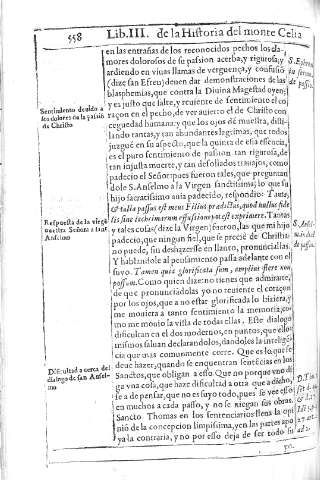 558 Lib.III. de la Historia del monte Celia
en las entrañas de los reconocidos pechos los cla-
mores dolorosos de su pasion acerba, y rigurosa, y
ardiendo en viuas llamas de verguença, y confusiō
(dize san Efren) denen dar demonstraciones de las
blasphemias, que contra la Diuina Magestad oyen;
y es justo que salte, y rebiente de sentimiento el co
raçon en el pecho, de ver auierto el de Christo con
ceguedad humana; y que los ojos dē muestra, disti-
lando tantas, y tan abundantes lagrimas, que todos
juzguē en su aspecto, que la quinta de essa essencia,
es el puro sentimiento de passion tan rigurosa, de
tan injusta muerte, y tan desollados trabajos, como
padecio el Señor: pues fueron tales, que preguntan
dole S. Anselmo a la Virgen sanctissima, lo que su
hijo sacratissimo auia padecido, respondio: Tante,
& talia passus est meus Filius prædilectus, quod nullus fide
lis sine lachrimarum effusione potest exprimere. Tantas
y tales cosas (dize la Virgen) fueron, las que mi hijo
padecio, que ningun fiel, que se precie de Christia-
no puede, sin deshazerse en llanto, pronunciallas.
Y hablandole al pensamiento passa adelante con el
suyo. Tamen quia glorificata sum, amplius flere non
possum. Como quien dize: no tienes que admirarte,
de que pronunciādolas yo no rebiente el coraçon
por los ojos, que a no estar glorificada lo hiziera, y
me mouiera a tanto sentimiento la memoria, co-
mo me mouio la vista de todas ellas. Este dialogo
dificultan en el dos modernos, en puntos, que ellos
mismos saluan declarandolos, dandoles la inteligē
cia que mas comunmente corre. Que es lo que se
deue hazer, quando se enquentran sentēcias en los
Sanctos, que obligan a esso. Que no porque vno di
ga vna cosa, que haze dificultad a otra que a dicho,
se a de pensar, que no es suyo todo, pues se vee esso
en muchos a cada passo, y no se niegan sus obras.
Sancto Thomas en los sentenciarios lleua la opi
niō de la concepcion limpissima, y en las partes apo
ya la contraria, y no por esso deja de ser todo su
Sentimiento deuido a
los dolores de la passiō
de Christo
Respuesta de la virgē
nuestra Señora a san
Anselmo
Dificultad a cerca del
dialogo de san Ansel-
mo
de passio.